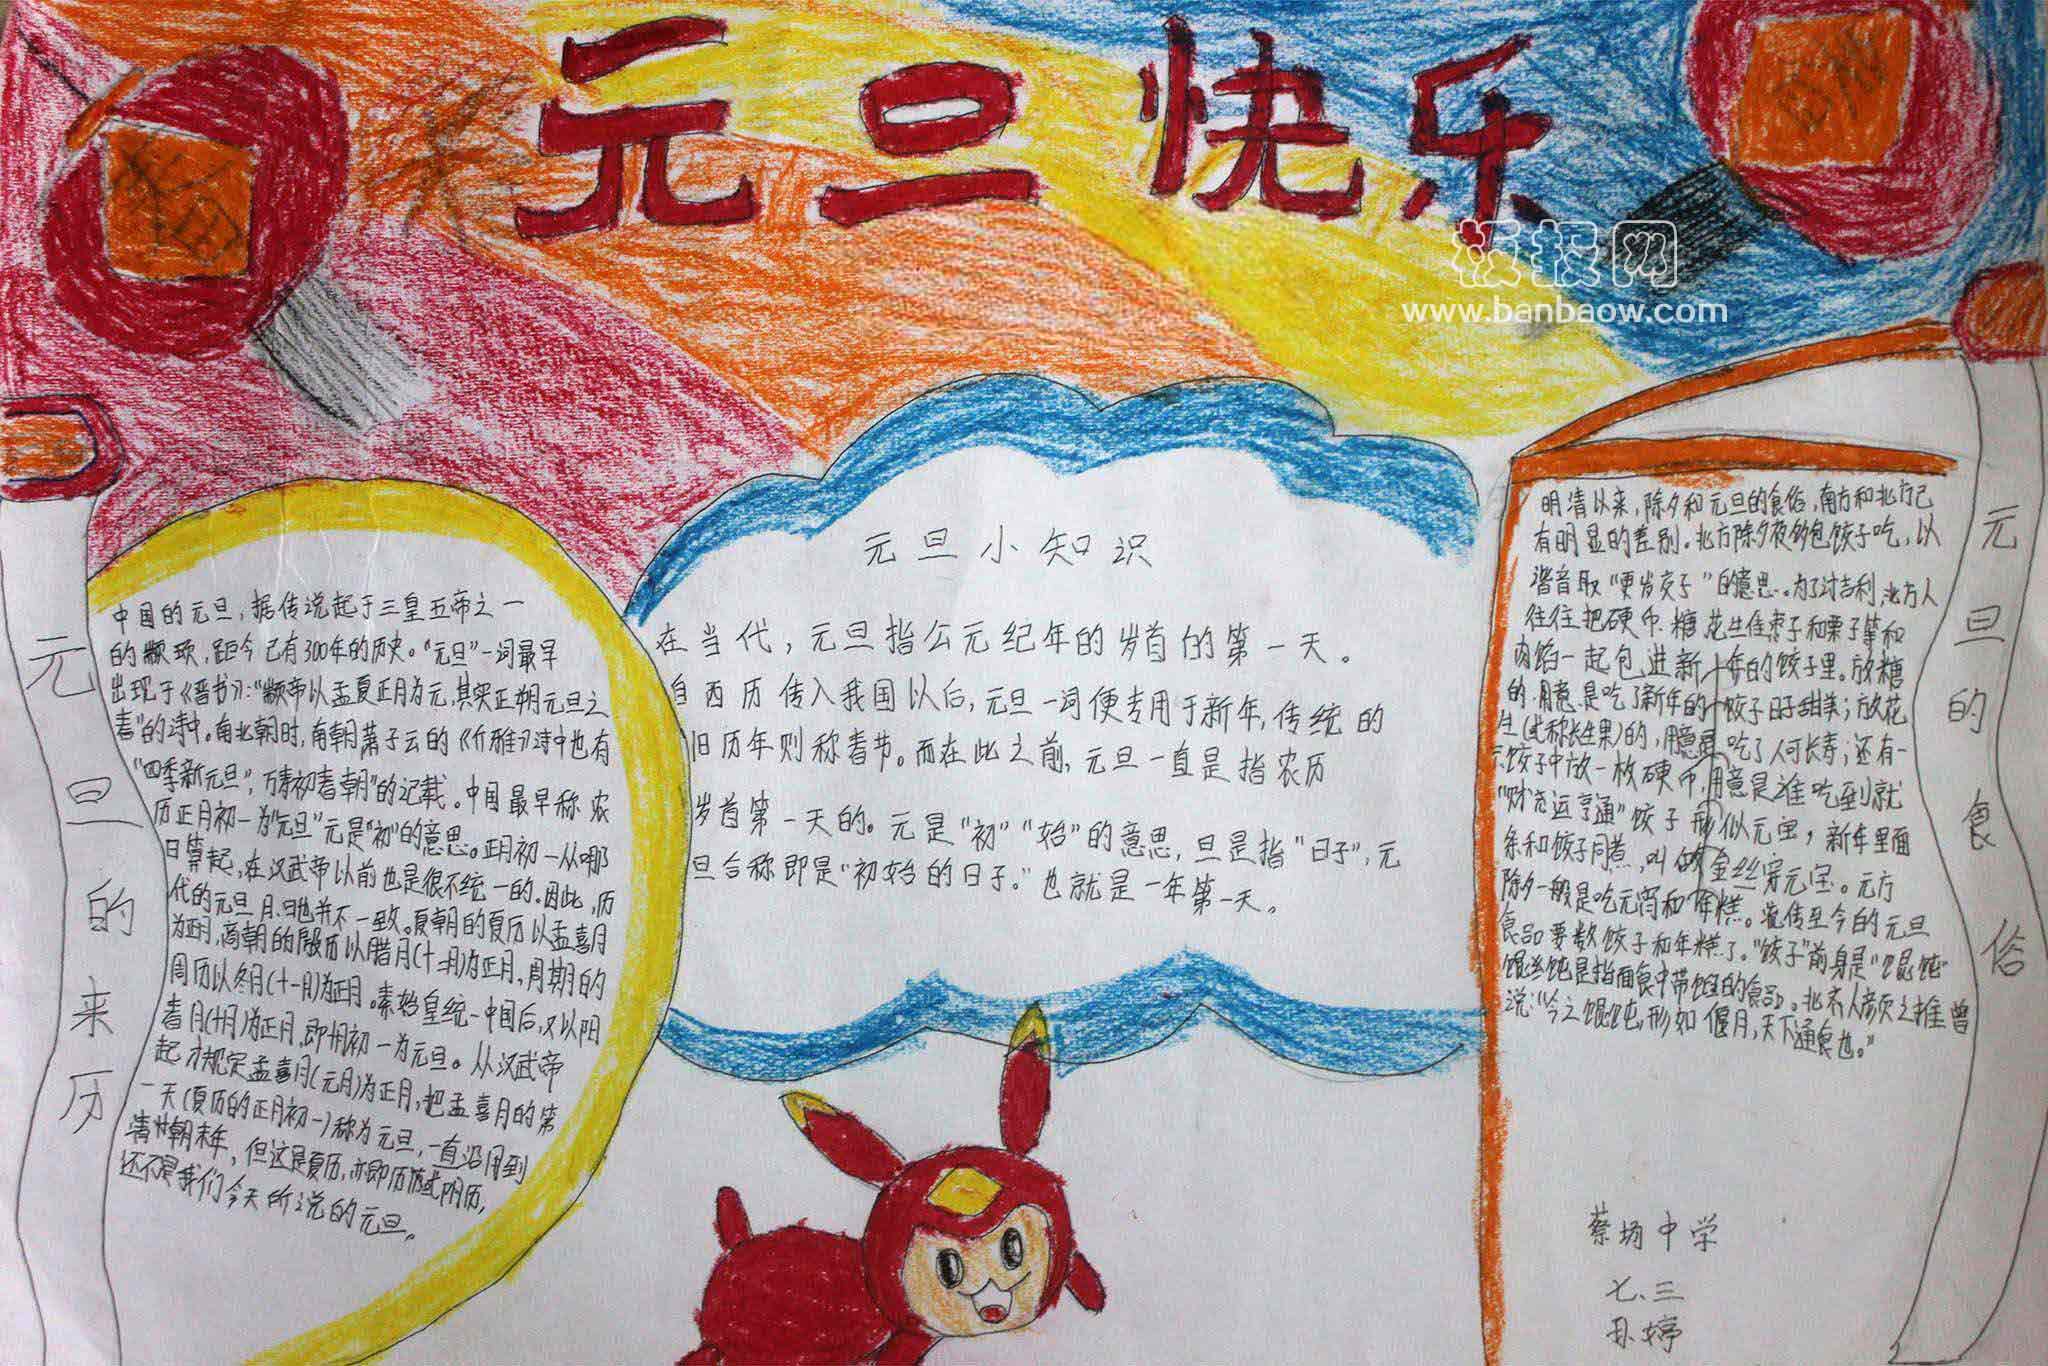 元旦快乐
板报网
www.banbaow.com
元旦的来历
中国的元旦，据传说起于三皇五帝之一
的颛顼，距今已有300年的历史。“元旦”一词最早
出现于《晋书》：“颛帝以孟夏正月为元，其实正朔元旦之
春”的诗中。南北朝时，南朝萧子云的《介雅》诗中也有
“四季新元旦”，万寿初春朝”的记载。中国最早称农
历正月初一为“元旦”元是“初”的意思。正月初一从哪
日算起，在汉武帝以前也是很不统一的。因此，历
代的元旦月、日也并不一致。夏朝的夏历以孟喜月
为正月，商朝的殷历以腊月(十二月)为正月，周期的
周历以冬月(十一月)为正月。秦始皇统一中国后，又以阳
春月(十月)为正月，即十月初一为元旦。从汉武帝
起才规定孟喜月(元月)为正月，把孟喜月的第
一天(夏历的正月初一)称为元旦，一直沿用到
清朝末年，但这是夏历，亦即历或阴历，
还不是我们今天所说的元旦。
元旦小知识
在当代，元旦指公元纪年的岁首的第一天。
自西历传入我国以后，元旦一词便专用于新年，传统的
旧历年则称春节。而在此之前，元旦一直是指农历
岁首第一天的。元是“初”“始”的意思，旦是指“日子”，元
旦合称即是“初始的日子。”也就是一年第一天。
元旦的食俗
明清以来，除夕和元旦的食俗，南方和北方已
有明显的差别。北方除夕夜的包饺子吃，以
谐音取“更岁交子”的意思。为了讨吉利，北方人
往往把硬币、糖、花生仁、枣子和栗子等和
肉馅一起包进新年的饺子里。放糖
的，用意是吃了新年的饺子日子甜美；放花
生(或称长生果)的，用意是吃了人可长寿；还有一
只饺子中放一枚硬币，用意是谁吃到就
“财运亨通”饺子形似元宝，新年里面
条和饺子同煮，叫做金丝穿元宝。元方
除夕一般是吃元宵和年糕。流传至今的元旦
食品要数饺子和年糕了。“饺子”前身是“馄饨”
馄饨是指面食中带馅的食品。北齐人颜之推曾
说“今之馄饨，形如偃月，天下通食也。”
蔡坊中学
七、三
孙婷